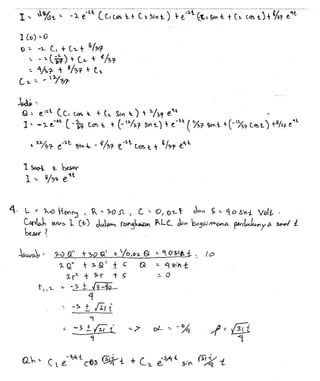 I = dQ/dt = -2 e^-2t (C1 cos t + C2 sin t) + e^-2t (-C1 sin t + C2 cos t) + 8/37 e^4t
I (0) = 0
0 = -2 C1 + C2 + 8/37
= -2 (-2/37) + C2 + 8/37
= 4/37 + 8/37 + C2
C2 = -12/37
Jadi :
Q = e^-2t (C1 cos t + C2 sin t) + 2/37 e^4t
I = -2 e^-2t (-2/37 cos t + (-12/37 sin t) + e^-2t (2/37 sin t + (-12/37 cos t) + 8/37 e^4t
I saat t besar
I = 8/37 e^4t
4. L = 20 Henry, R = 30 Ω, C = 0,02 F dan E = 40 sin t Volt.
Carilah arus I (t) dalam rangkaian RLC dan bagaimana perilakunya saat t
besar ?
Jawab : 20 Q'' + 30 Q' + 1/0,02 Q = 40 sin t : 10
2 Q'' + 3 Q' + 5 Q = 4 sin t
2r² + 3r + 5 = 0
r1,2 = -3 ± √9-40
4
= -3 ± √31 i
4
= -3 ± √31 i => α = -3/4 β = √31 i
4 4
Qh = C1 e^-3/4 t cos √31/4 t + C2 e^-3/4 t sin √31/4 t